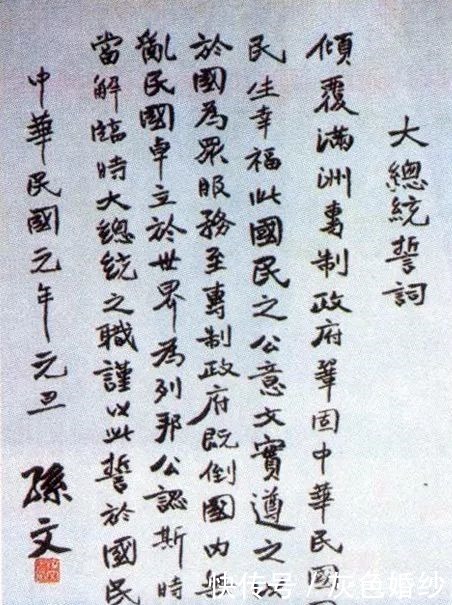 大總統誓詞
傾覆滿洲專制政府鞏固中華民國
民生幸福此國民之公意文實遵之以
於國為眾服務至專制政府既倒國內無
亂民國卓立於世界為列邦公認斯時
當解臨時大總統之職謹以此誓於國民
中華民國元年元旦
孫文
快传号 / 灰色婚纱